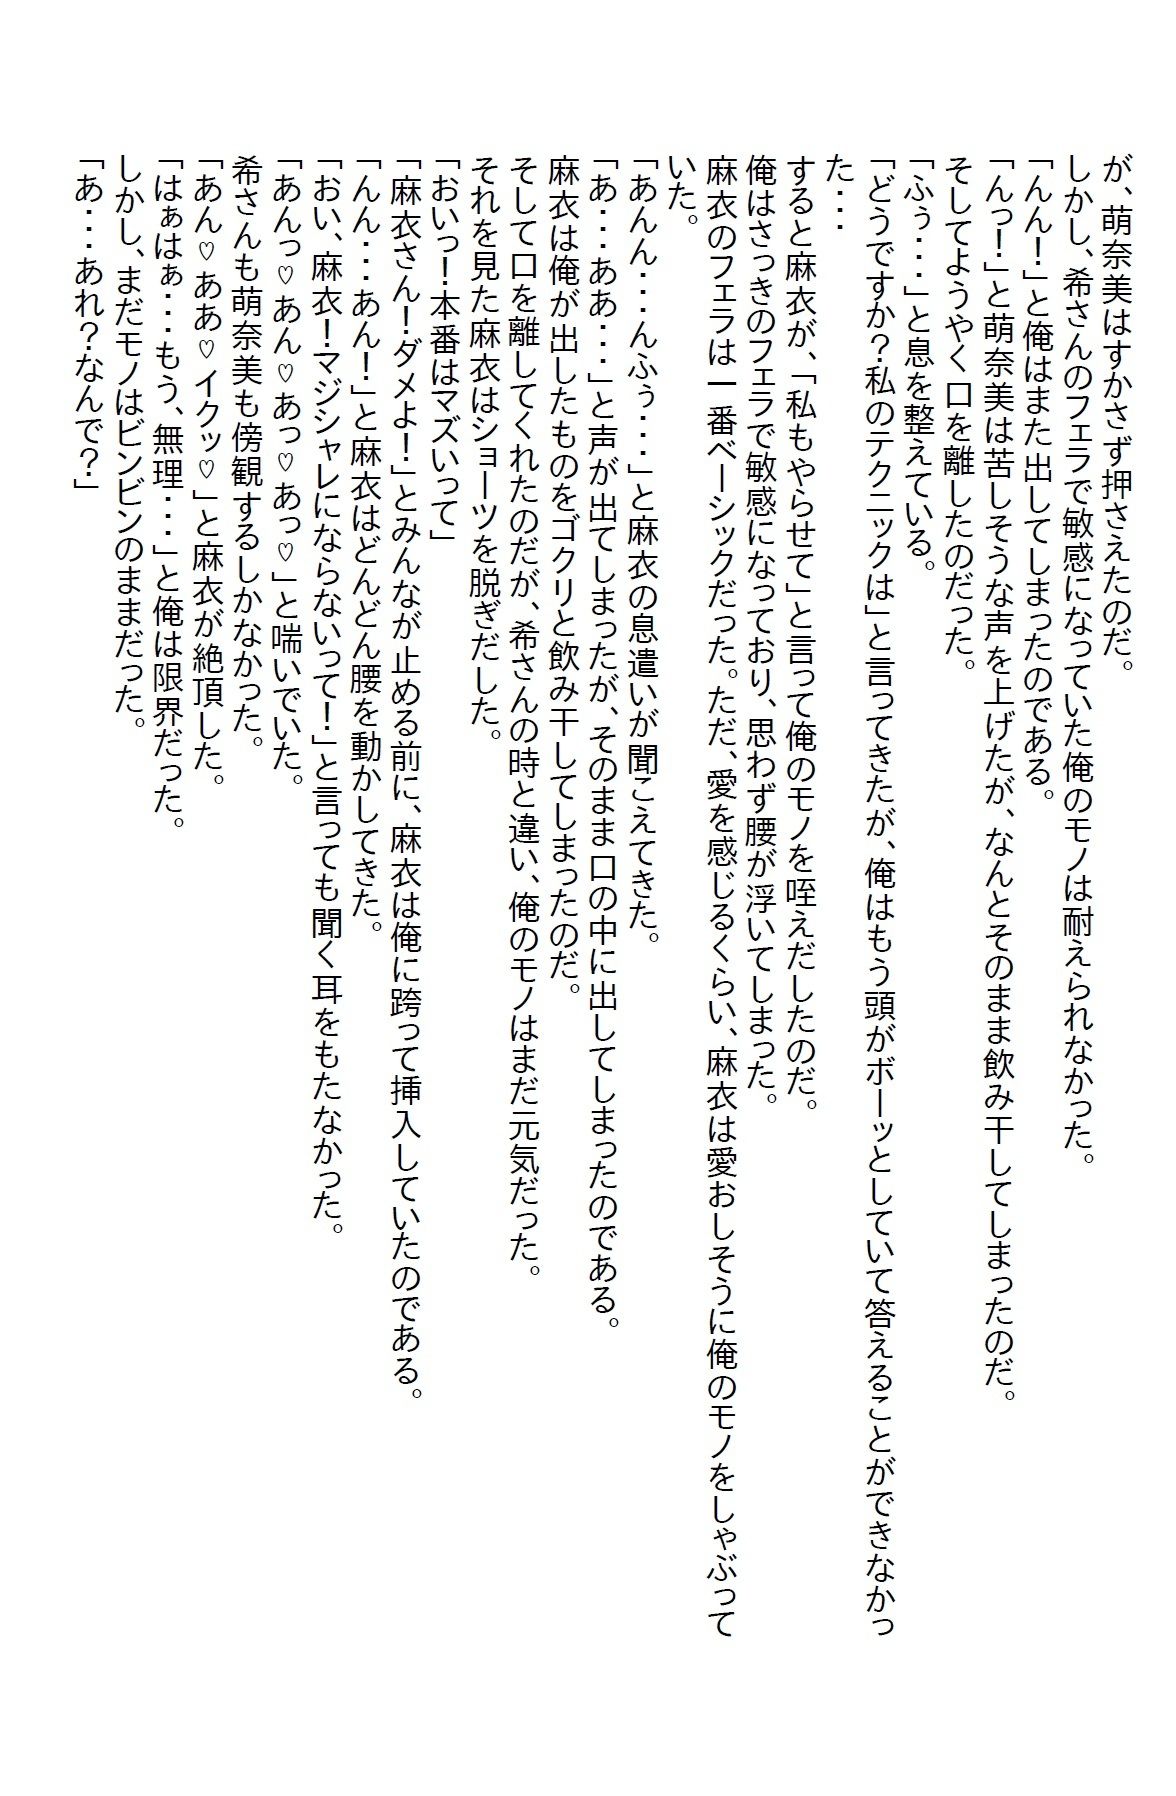 が、萌奈美はすかさず押さえたのだ。
しかし、希さんのフェラで敏感になっていた俺のモノは耐えられなかった。
「んん！」と俺はまた出してしまったのである。
「んっ！」と萌奈美は苦しそうな声を上げたが、なんとそのまま飲み干してしまったのだ。
そしてようやく口を離したのだった。
「ふぅ・・・」と息を整えている。
「どうですか？私のテクニックは」と言ってきたが、俺はもう頭がボーッとしていて答えることができなかっ
た・・・
すると麻衣が、「私もやらせて」と言って俺のモノを咥えだしたのだ。
俺はさっきのフェラで敏感になっており、思わず腰が浮いてしまった。
麻衣のフェラは一番ベーシックだった。ただ、愛を感じるくらい、麻衣は愛おしそうに俺のモノをしゃぶって
いた。
「あんん・・・んふぅ・・・」と麻衣の息遣いが聞こえてきた。
「あ・・・ああ・・・」と声が出てしまったが、そのまま口の中に出してしまったのである。
麻衣は俺が出したものをゴクリと飲み干してしまったのだ。
そして口を離してくれたのだが、希さんの時と違い、俺のモノはまだ元気だった。
それを見た麻衣はショーツを脱ぎだした。
「おいっ！本番はマズいって」
「麻衣さん！ダメよ！」とみんなが止める前に、麻衣は俺に跨って挿入していたのである。
「んん・・・あん！」と麻衣はどんどん腰を動かしてきた。
「おい、麻衣！マジシャレにならないって！」と言っても聞く耳をもたなかった。
「あんっ♡あん♡あっ♡あっ♡」と喘いでいた。
希さんも萌奈美も傍観するしかなかった。
「あん♡ああ♡イクッ♡」と麻衣が絶頂した。
「はぁはぁ・・・もう、無理・・・」と俺は限界だった。
しかし、まだモノはビンビンのままだった。
「あ・・・あれ？なんで？」